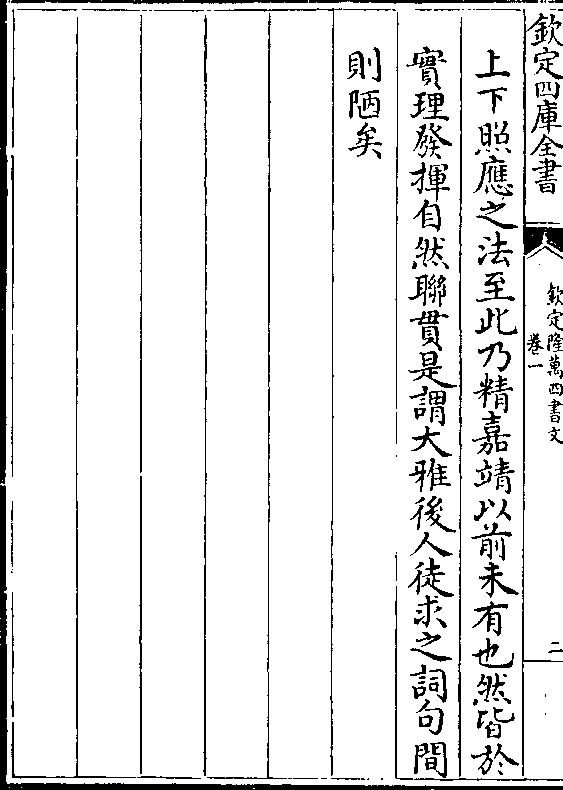 欽定四庫全書
欽定隆萬四書文
卷一
二
上下照應之法至此乃精嘉靖以前未有也然皆於
實理發揮自然聯貫是謂大雅後人徒求之詞句間
則陋矣